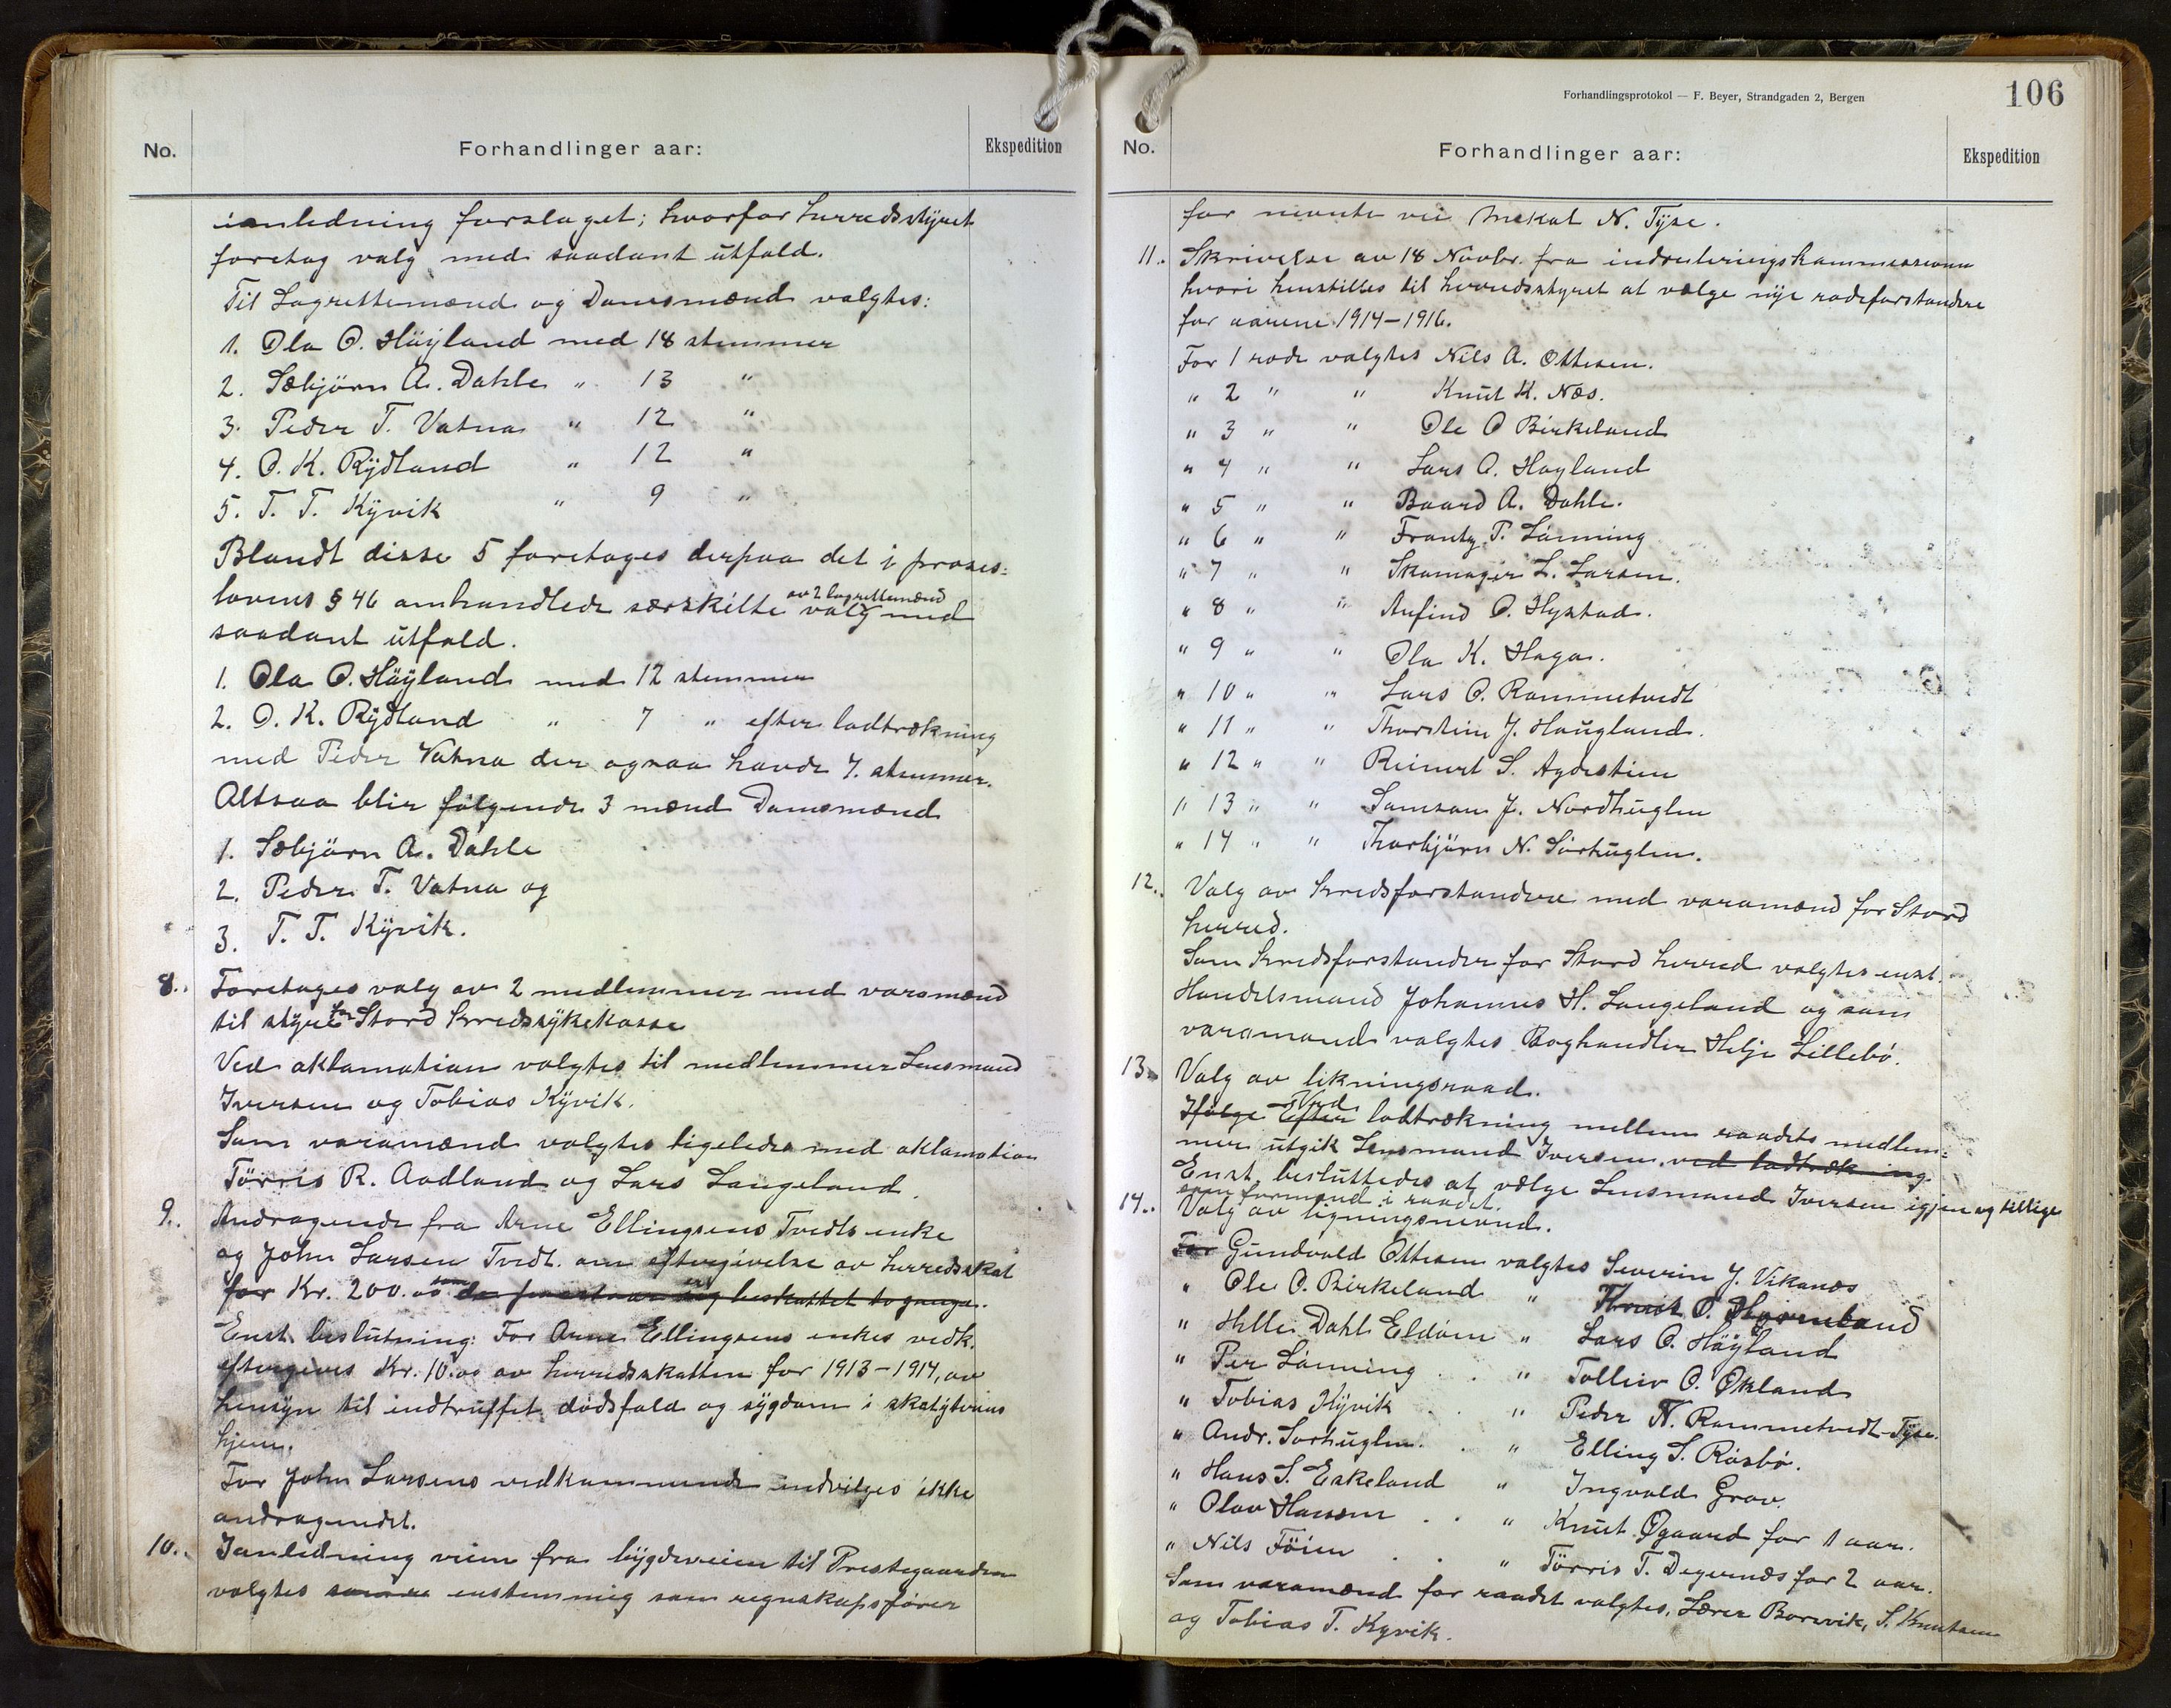 No.
Forhandlinger aar:
Ekspedition
ianledning forslaget; hvorfor herredsstyret
foretog valg med saadant utfald.
Til Lagrettemænd og Domsmænd valgtes:
1. Ola O. Höyland med 18 stemmer
2. Sæbjörn A. Dahle " 13 "
3. Peder T. Vatna " 12 "
4. O. K. Rydland " 12 "
5. T. T. Kyvik " 9 "
Blandt disse 5 foretoges derpaa det i proses-
lovens § 46 omhandlede særskilte valg av 2 lagrettemænd med
saadant utfald.
1. Ola O. Höyland med 12 stemmer
2. O. K. Rydland " 7 " efter lodtrækning
med Peder Vatna der ogsaa havde 7. stemmer.
Altsaa blir følgende 3 mænd Domsmænd
1. Sæbjörn A. Dahle
2. Peder T. Vatna og
3. T. T. Kyvik.
8. Foretages valg av 2 medlemmer med varamænd
til styre for Stord kredssykekasse
Ved aklamation valgtes til medlemmer Lensmand
Iversen og Tobias Kyvik.
Som varamænd valgtes ligeledes med aklamation
Törris R. Aadland og Lars Langeland.
9. Andragende fra Arne Ellingsens Tvedts enke
og John Larsen Tvedt. om eftergivelse av herredsskat
for Kr. 200.00 som er beskattet to gange.
Enst. beslutning: For Arne Ellingsens enkes vedk.
eftergives Kr. 10.00 av herredsskatten for 1913-1914, av
hensyn til indtruffet dödsfald og sygdom i skatyterens
hjem.
For John Larsens vedkommende indvilges ikke
andragendet.
10. Ianledning veien fra bygdeveien til Prestegaarden
valgtes samme enstemmig som regnskapsfører
Forhandlingsprotokol — F. Beyer, Strandgaden 2, Bergen
106
No.
Forhandlinger aar:
Ekspedition
for nevnte vei Meskat N. Tyse.
11. Skrivelse av 18 Novbr. fra indrulleringskommissionen
hvori henstilles til herredsstyret at vælge nye rodeforstandere
for aarene 1914-1916.
For 1 rode valgtes Nils A. Ottesen.
" 2 " " Knut K. Næs.
" 3 " " Ole O Birkeland
" 4 " " Lars O. Hoyland
" 5 " " Baard A. Dahle.
" 6 " " Frantz P. Lønning
" 7 " " Skomager L. Larsen.
" 8 " " Anfind O. Hystad.
" 9 " " Ola K. Haga.
" 10 " " Lars O. Rommetvedt
" 11 " " Thorstein J. Haugland.
" 12 " " Reinert S. Agdestien
" 13 " " Samson J. Nordhuglen
" 14 " " Thorbjörn N. Sörhuglen.
12. Valg av kredsforstandere med varamænd for Stord
herred.
Som kredsforstander for Stord herred valgtes enst.
Handelsmand Johannes H. Langeland og som
varamand valgtes Boghandler Helje Lillebø.
13. Valg av likningsraad.
Ifølge Efter Ved lodtrækning mellem raadets medlem-
mer utgik Lensmand Iversen. ved lodtrækning
Enst. besluttedes at vælge Lensmand Iversen igjen og tillige
som formand i raadet.
14. Valg av ligningsnevnd.
For Gundvald Ottesen valgtes Severin J. Vikanes
" Ole O. Birkeland " Knut O. Hjørneland
" Helle Dahl Eldöen " Lars O. Höyland
" Per Lönning . . " Tolleiv O. Økland
" Tobias Kyvik . . " Peder N. Rommetvedt-Tyse.
" Andr. Sørhuglen . . " Elling S. Rösbø.
" Hans S. Eskeland " Ingvald Grov.
" Olav Hansen . . " Knut Øgaard for 1 aar.
" Nils Föien . . " Törris T. Degernæs for 2 aar.
Som varamænd for raadet valgtes, Lærer Borsvik, S. Knutsen
og Tobias T. Kyvik.